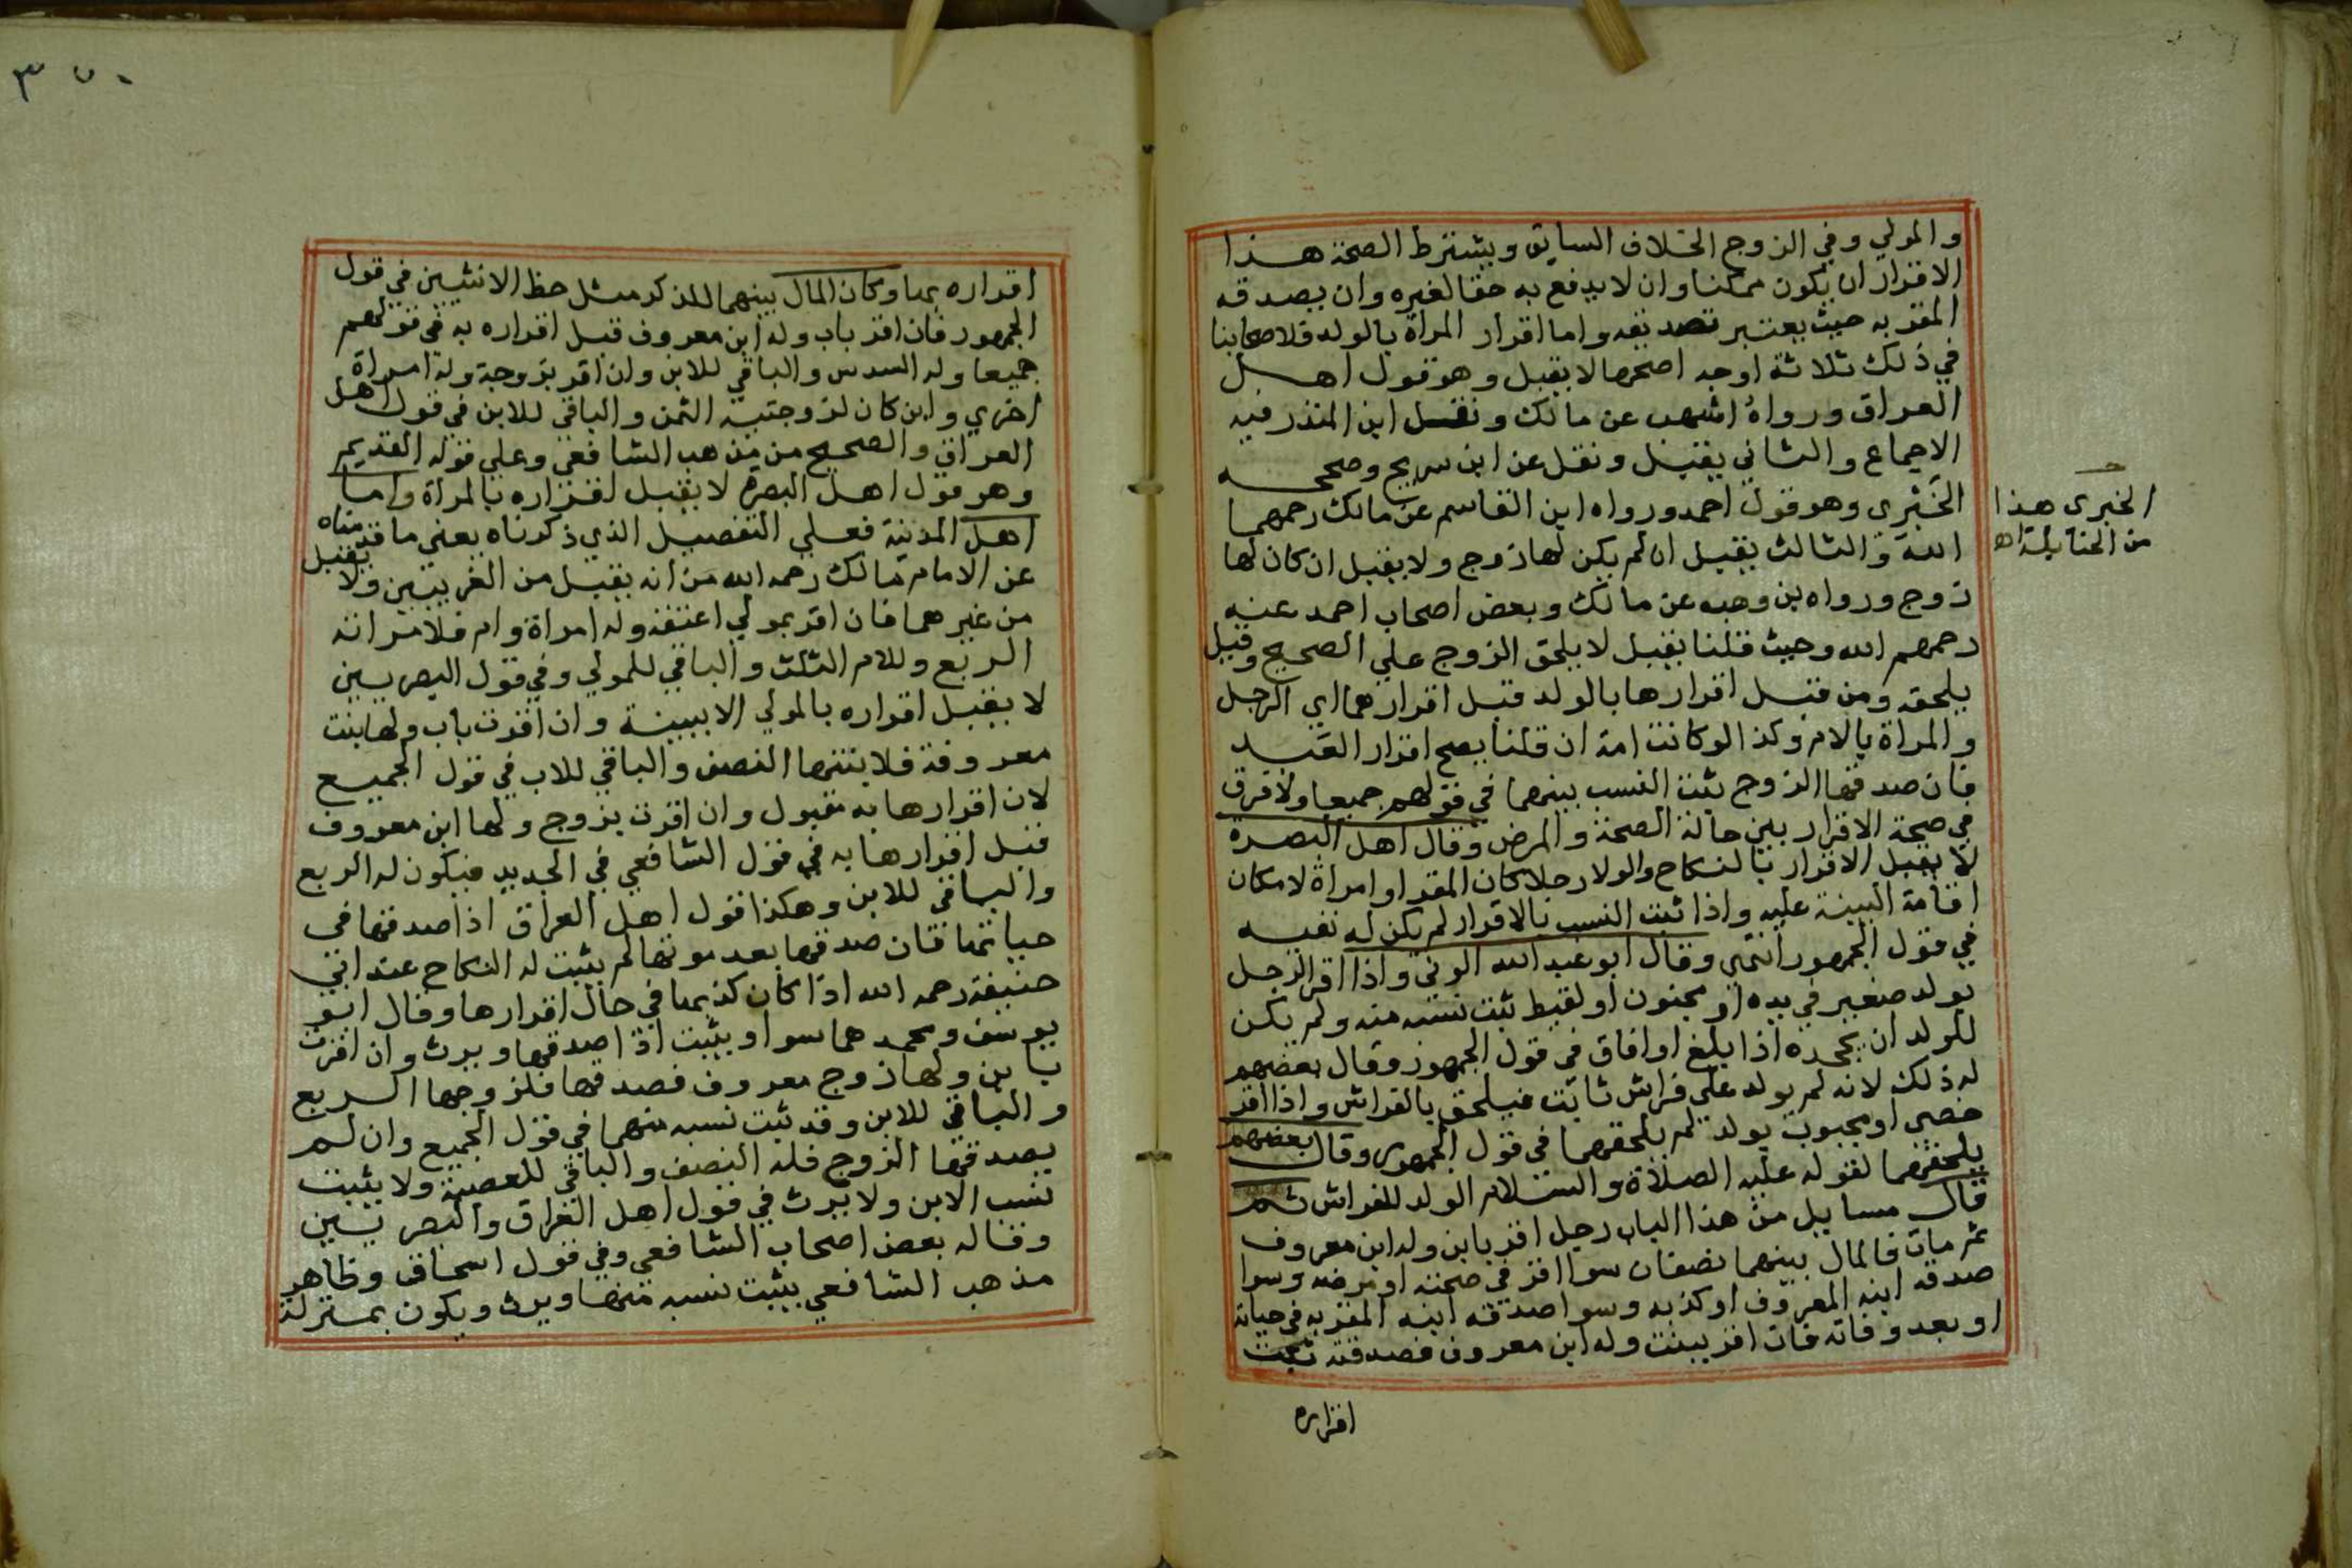 والمولي وفي الزوج الخلاف السابق ويشترط الصحة هذا
الاقرار ان يكون ممكنا وان لا يدفع به حقا لغيره وان يصدقه
المقر به حيث يعتبر تصديقه واما اقرار المراة بالولد فلاصحابنا
في ذلك ثلاثة اوجه اصحها لا يقبل وهو قول اهل
العراق ورواه اشهب عن مالك ونقل ابن المنذر فيه
الاجماع والثاني يقبل ونقل عن ابن سريج وصححه
الخبري وهو قول احمد ورواه ابن القاسم عن مالك رحمهما
الله والثالث يقبل ان لم يكن لها زوج ولا يقبل ان كان لها
زوج ورواه بن وهب عن مالك وبعض اصحاب احمد عنه
رحمهم الله وحيث قلنا يقبل لا يلحق الزوج علي الصحيح وقيل
يلحقه ومن قبل اقرارها بالولد قبل اقرارهما اي الرجل
والمراة بالام وكذا لو كانت امة ان قلنا يصح اقرار العبد
فان صدقها الزوج ثبت النسب بينهما في قولهم جميعا ولا فرق
في صحة الاقرار بين حالة الصحة والمرض وقال اهل البصرة
لا يقبل الاقرار بالنكاح والولا رجلا كان المقر او امراة لامكان
اقامة البينة عليه واذا ثبت النسب بالاقرار لم يكن له نفيه
في قول الجمهور انتهى وقال ابو عبد الله الوني واذا اقر الرجل
بولد صغير في يده او مجنون او لقيط ثبت نسبه منه ولم يكن
للولد ان يجحده اذا بلغ او افاق في قول الجمهور وقال بعضهم
له ذلك لانه لم يولد على فراش ثابت فيلحق بالفراش واذا اقر
خصي او مجبوب بولد لم يلحقهما في قول الجمهور وقال بعضهم
يلحقهما لقوله عليه الصلاة والسلام الولد للفراش ثم
قال مسايل من هذا الباب رجل اقر بابن وله ابن معروف
ثم مات فالمال بينهما نصفان سوا اقر في صحته او مرضه وسوا
صدقه ابنه المعروف او كذبه وسوا صدقه ابنه المقر به في حياته
او بعد وفاته فان اقر ببنت وله ابن معروف فصدقته ثبت
اقراره
الخبرى هذا
من الحنابلة اه
٣٥٠
اقراره بها وكان المال بينهما للذكر مثل حظ الانثيين في قول
الجمهور فان اقر باب وله ابن معروف قبل اقراره به في قولهم
جميعا وله السدس والباقي للابن وان اقر بزوجة وله امراة
اخري وابن كان لزوجتيه الثمن والباقي للابن في قول اهل
العراق والصحيح من مذهب الشافعي وعلي قوله القديم
وهو قول اهل البصرة لا يقبل اقراره بالمراة واما
اهل المدينة فعلي التفصيل الذي ذكرناه يعني ما قدمناه
عن الامام مالك رحمه الله من انه يقبل من الغريبين ولا يقبل
من غيرهما فان اقر بمولي اعتقه وله امراة وام فلامراته
الربع وللام الثلث والباقي للمولي وفي قول البصريين
لا يقبل اقراره بالمولي الا ببينة وان اقرت باب ولها بنت
معروفة فلابنتها النصف والباقي للاب في قول الجميع
لان اقرارها به مقبول وان اقرت بزوج ولها ابن معروف
قبل اقرارها به في قول الشافعي في الجديد فيكون له الربع
والباقي للابن وهكذا قول اهل العراق اذا صدقها في
حياتها فان صدقها بعد موتها لم يثبت له النكاح عند ابي
حنيفة رحمه الله اذا كان كذبها في حال اقرارها وقال ابو
يوسف ومحمد هما سوا ويثبت اذا صدقها ويرث وان اقرت
بابن ولها زوج معروف فصدقها فلزوجها الربع
والباقي للابن وقد ثبت نسبه منهما في قول الجميع وان لم
يصدقها الزوج فله النصف والباقي للعصبة ولا يثبت
نسب الابن ولا يرث في قول اهل العراق والبصريين
وقاله بعض اصحاب الشافعي وفي قول اسحاق وظاهر
مذهب الشافعي يثبت نسبه منها ويرث ويكون بمنزلة